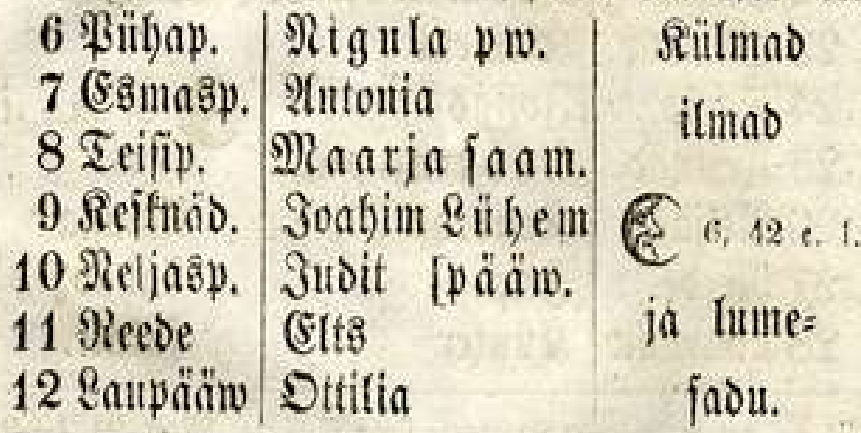 6 Pühap. Nigula pw. Külmad
7 Esmasp. Antonia ilmad
8 Teisip. Maarja saam.
9 Kesknäd. Joahim Lühem 6, 42 e. l.
10 Neljasp. Judit [pääw.
11 Reede Elts ja lume-
12 Laupääw Ottilia sadu.